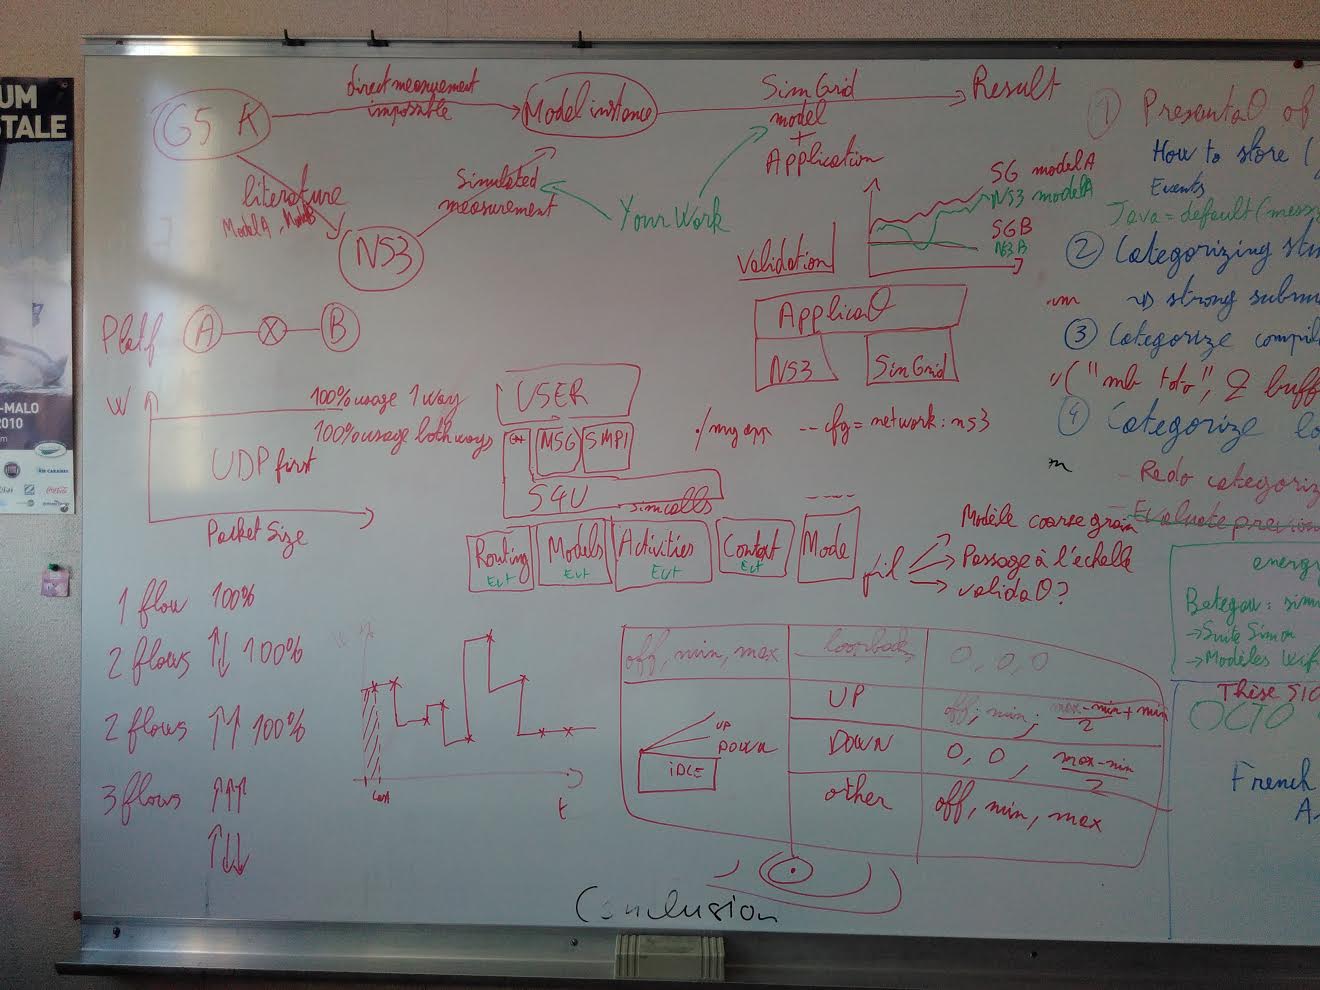 UM
STALE
-MALO
2010
G5 K
direct measurement
impossible
Model instance
SimGrid
model
+
Application
Result
literature
Model A, Model B
Simulated
measurement
Your Work
NS3
Validation
SG model A
NS3 model A
SGB
NS3 B
ApplicaO
NS3
SimGrid
Platf
A
X
B
W
100% usage 1 way
100% usage both ways
UDP first
Packet Size
USER
MSG
SMPI
S4U
simcalls
./myapp --cfg=network:ns3
Routing
Models
Activities
Context
Mode
Modèle coarse grain
Passage à l'échelle
validaO?
1 flow 100%
2 flows ↑↓ 100%
2 flows ↑↑ 100%
3 flows ↑↑↑
↑↓↓
Last
t
off, min, max
loopback
0, 0, 0
UP
off, min, max-min/2 + min
UP
DOWN
IDLE
DOWN
0, 0, max-min/2
other
off, min, max
Conclusion
1 PresentaO of
How to store (
Events
Java = default (mess
2 Categorizing stu
→ strong subm
3 Categorize compil
("mb toto", 2 buff
4 Categorize lo
- Redo categoriz
- Evaluate previou
energ
→ Suite Simon
→ Modèles Wif
Thèse SIO
OCTO
French
A